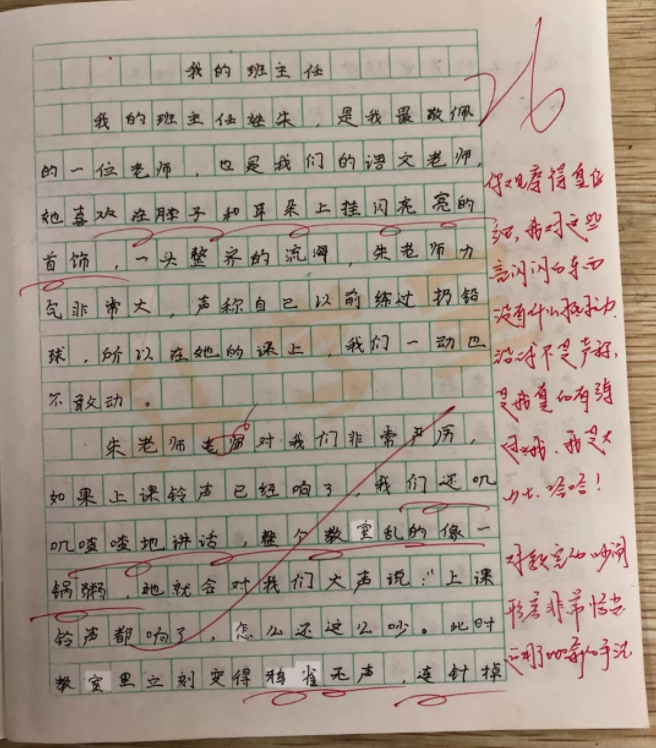 我的班主任
26
我的班主任姓朱，是我最敬佩
的一位老师，也是我们的语文老师，
她喜欢在脖子和耳朵上挂闪亮亮的
首饰，一头整齐的流海，朱老师力
气非常大，声称自己以前练过扔铅
球，所以在她的课上，我们一动也
不敢动。
朱老师老师对我们非常严厉，
如果上课铃声已经响了，我们还叽
叽喳喳地讲话，整个教室乱的像一
锅粥，她就会对我们大声说："上课
铃声都响了，怎么还这么吵。此时
教室里立刻变得鸦雀无声，连针掉
你观察得真仔
细，我对这些
闪闪的东西
没有什么抵抗力
没错不是声称，
是我真的有练
过，我是大
力士，哈哈！
对教室的吵闹
形容非常恰当
运用了比喻的手法